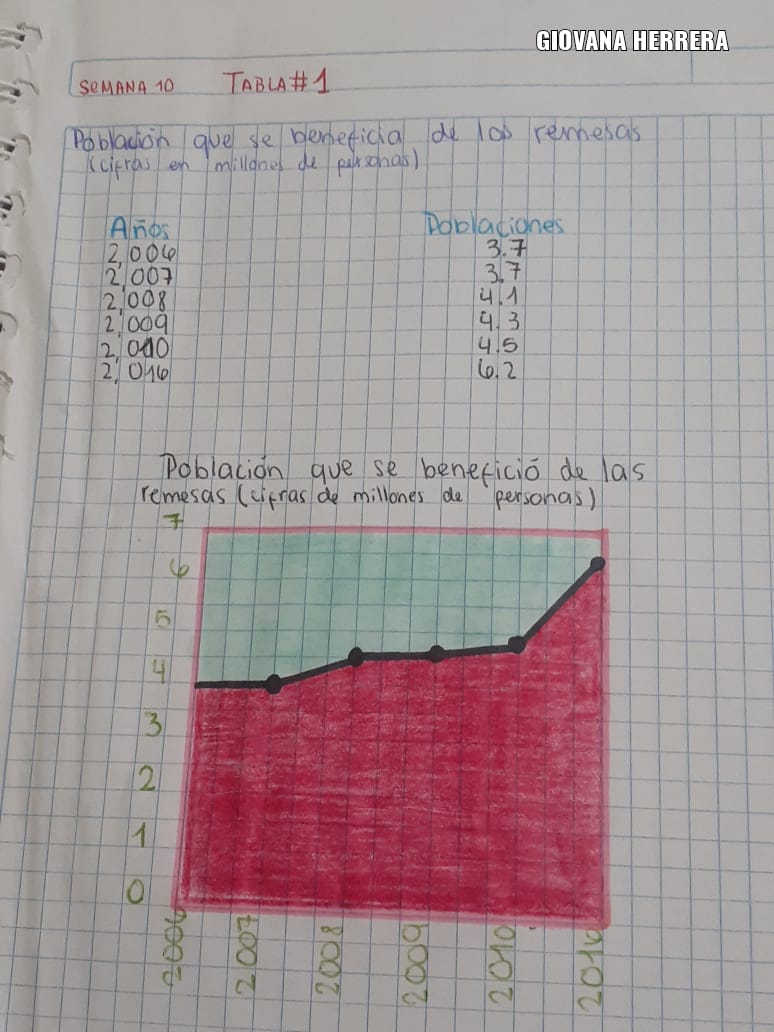 GIOVANA HERRERA
SEMANA 10 TABLA #1
Población que se beneficia de las remesas
(cifras en millones de personas)
Años Poblaciones
2,006 3.7
2,007 3.7
2,008 4.1
2,009 4.3
2,010 4.5
2,016 6.2
Población que se benefició de las
remesas (cifras de millones de personas)
7
6
5
4
3
2
1
0
2006 2007 2008 2009 2010 2016